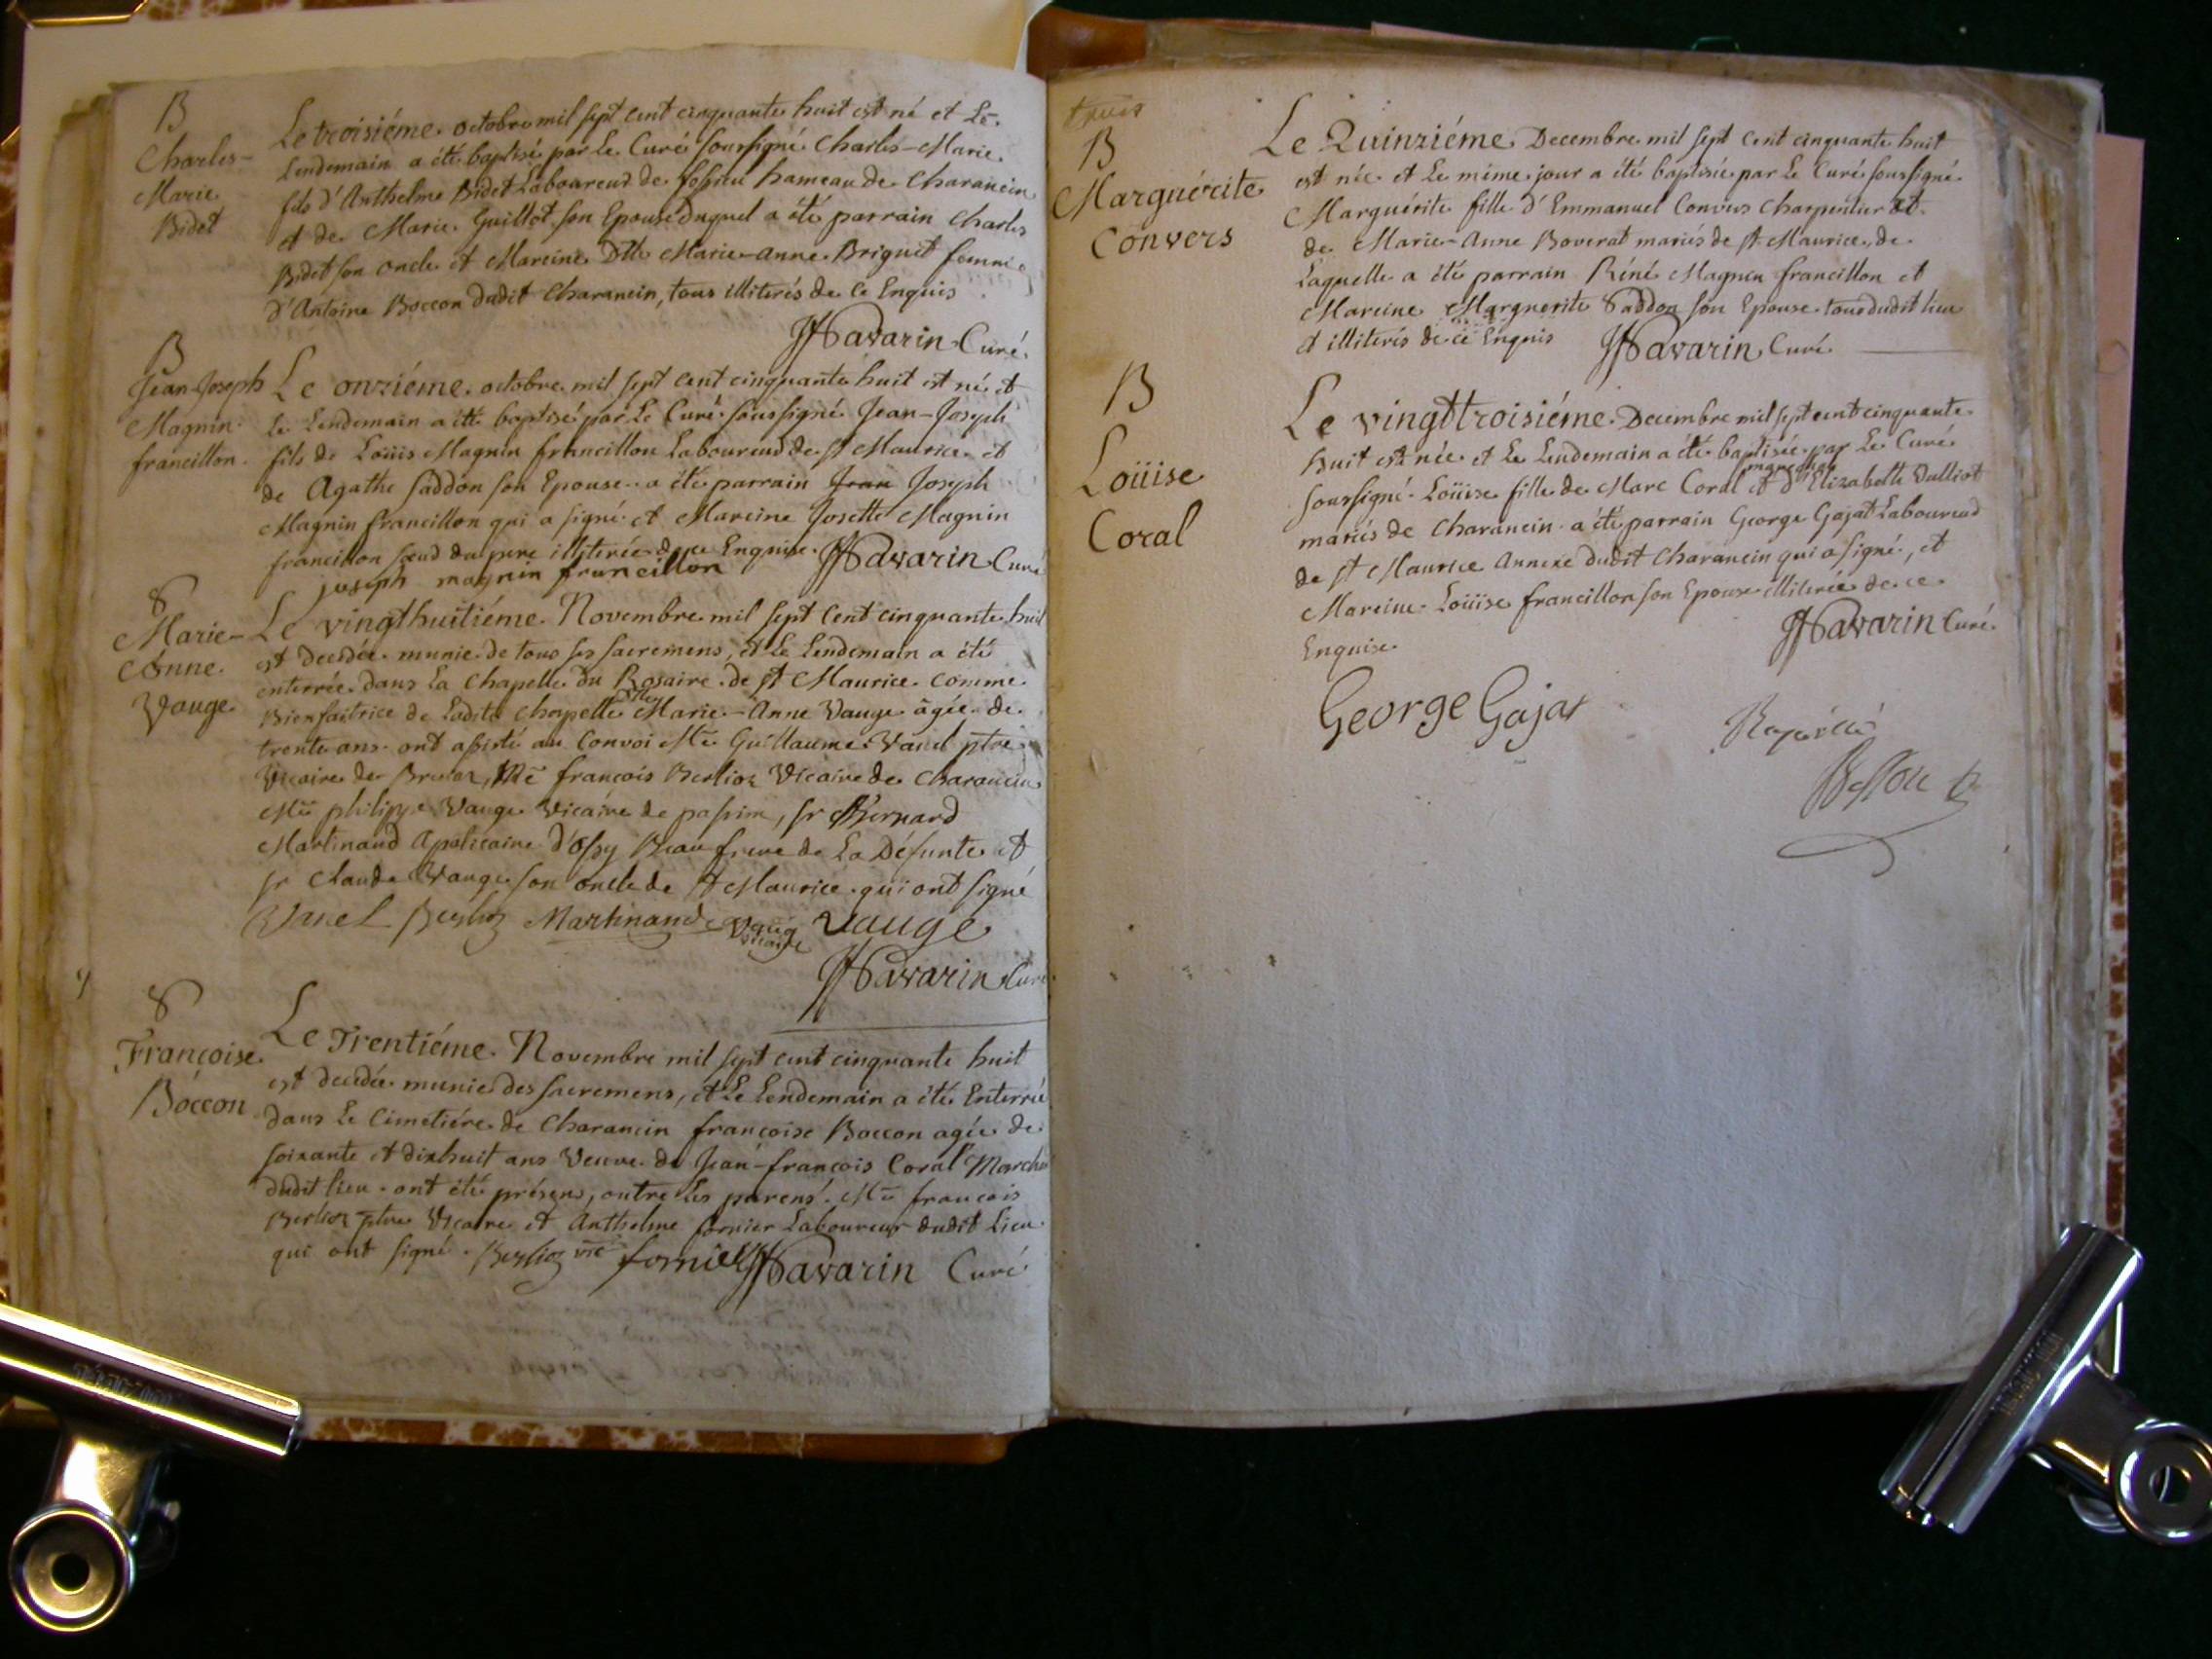 B
Charles-
Marie
Bidet
Le troisiéme octobre mil sept cent cinquante huit est né et Le
Lendemain a été baptisé par Le Curé soussigné Charles-Marie
fils d'Anthelme Bidet Laboureur de fossieu hameau de Charancin
et de Marie Guillot son Epouse Duquel a été parrain Charles
Bidet son oncle et Mareine Dlle Marie-anne Briguet femme
d'Antoine Boccon dudit Charancin, tous illiterés de ce Enquis
Savarin Curé
B
Jean-Joseph
Magnin
francillon
Le onziéme octobre mil sept cent cinquante huit est né et
le Lendemain a été baptisé par Le Curé soussigné Jean-Joseph
fils de Loüis Magnin francillon Laboureur de st Maurice et
de Agathe Saddon son Epouse a été parrain Jean Joseph
Magnin francillon qui a signé et Mareine Josette Magnin
francillon sœud du pere illiterée de ce Enquise Savarin Curé
joseph magnin francillon
S
Marie-
Anne
Vauge
Le vingthuitiéme Novembre mil sept Cent cinquante huit
est decedée munie de tous ses sacremens, et Le Lendemain a été
enterrée dans La Chapelle du Rosaire de st Maurice comme
Bienfaitrice de Ladite chapelle Dlle Marie-Anne Vauge âgée de
trente ans ont assisté au Convoi Mre Guillaume Vanel ptre
Vicaire de Brenaz, Mre françois Berlioz Vicaire de Charancin
Mre philippe Vauge Vicaire de passin, sr Bernard
Martinand Apoticaire d'ossy Beau frere de La Défunte et
sr Claude Vauge son oncle de st Maurice qui ont signé
Vanel Berlioz Martinand Vauge vicaire Vauge
Savarin Curé
S
Françoise
Boccon
Le Trentiéme Novembre mil sept cent cinquante huit
est decedée munie des sacremens, et Le Lendemain a été Enterrée
dans Le Cimetiére de Charancin françoise Boccon agée de
soixante et dixhuit ans Veuve de Jean-françois Coral Marchd
dudit lieu ont été présens, outre les parens Mre françois
Berlioz ptre Vicaire et Anthelme fornier Laboureur dudit Lieu
qui ont signé Berlioz vic fornier Savarin Curé
B
Marguérite
Convers
Le Quinziéme Decembre mil sept cent cinquante huit
est née et Le même jour a été baptisée par Le Curé soussigné
Marguérite fille d'Emmanuel Convers charpentier et
de Marie-Anne Boverat mariés de st Maurice, de
Laquelle a été parrain Réné Magnin francillon et
Mareine Marguerite Saddon son Epouse tous dudit lieu
et illiterés de ce Enquis Savarin Curé
B
Loüise
Coral
Le vingttroisiéme Decembre mil sept cent cinquante
huit est née et Le Lendemain a été baptisée par Le Curé
soussigné Loüise fille de Marc Coral et d'Elizabette Valliot
mariés de Charancin a été parrain George Gojat Laboureur
de st Maurice Annexe dudit Charancin qui a signé, et
Mareine Loüise francillon son Epouse illiterée de ce
Enquise
Savarin Curé
George Gojat